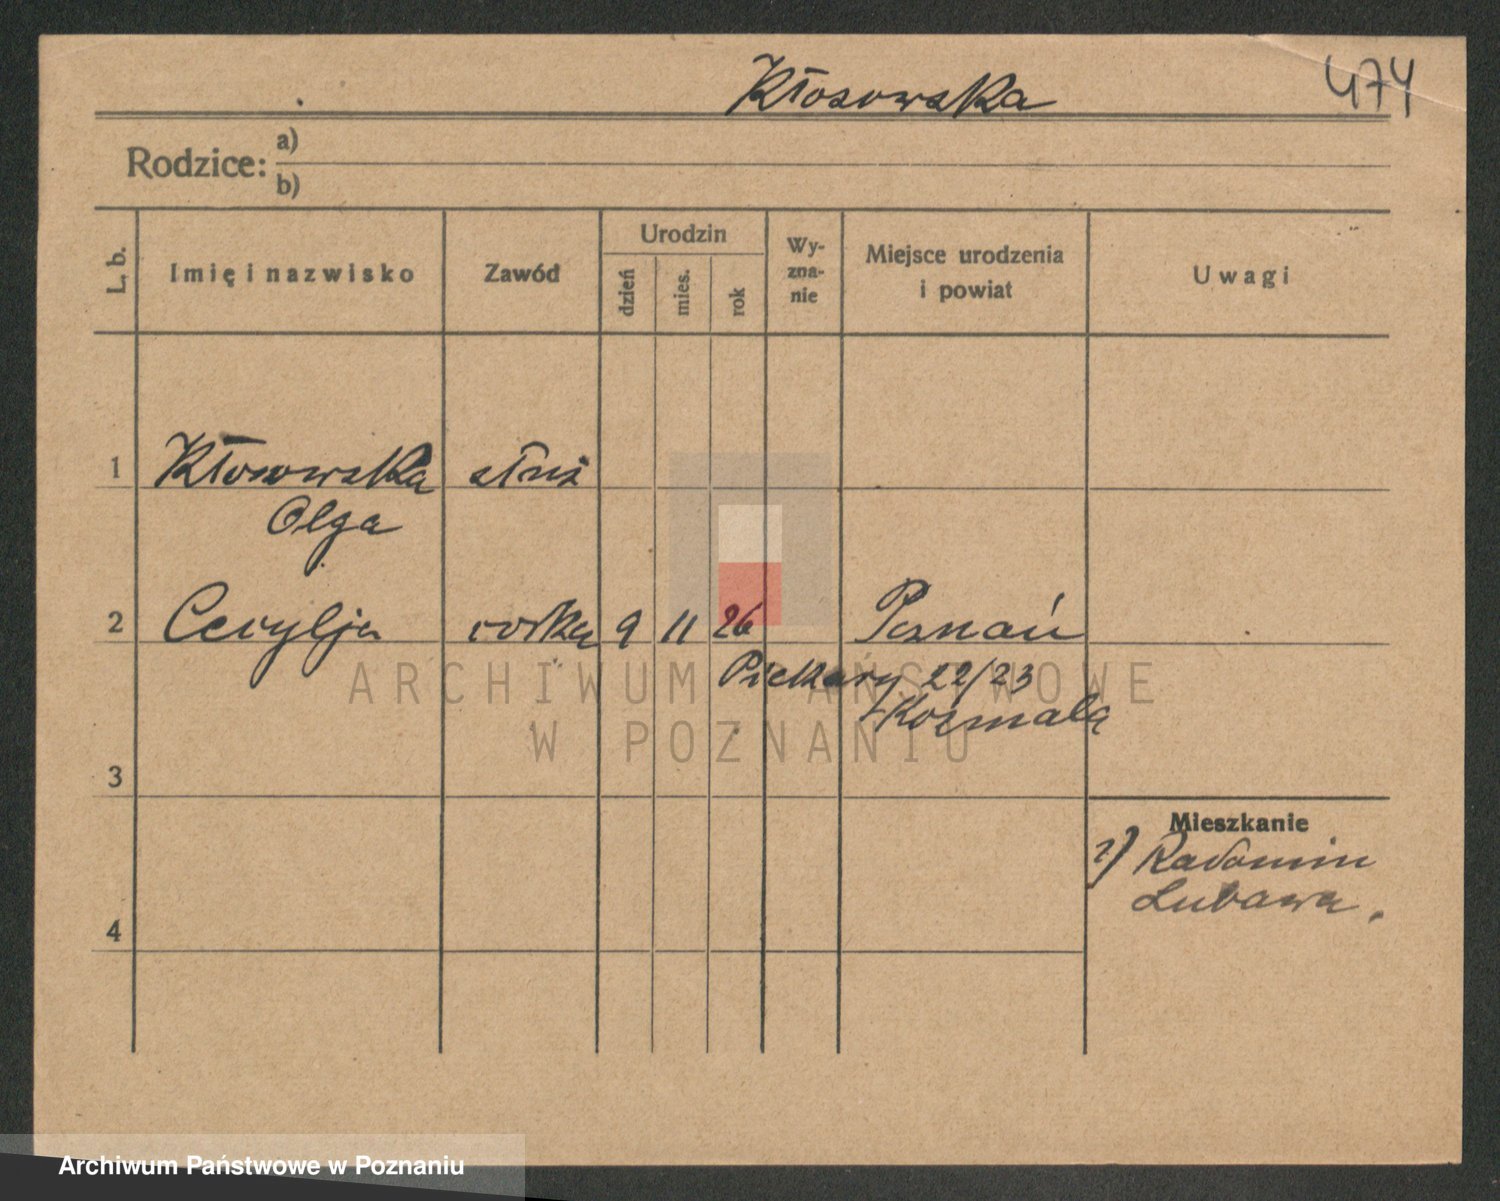 Kłosowska 474
Rodzice: a)
b)
L. b. Imię i nazwisko Zawód Urodzin dzień mies. rok Wy-zna-nie Miejsce urodzenia i powiat Uwagi
1 Kłosowska służ
Olga
2 Cecylja córka 9 11 26 Poznań
Piekary 22/23
Kozmala
ARCHIWUM PAŃSTWOWE
W POZNANIU
3
Mieszkanie
Radomin
Lubawa.
4
Archiwum Państwowe w Poznaniu